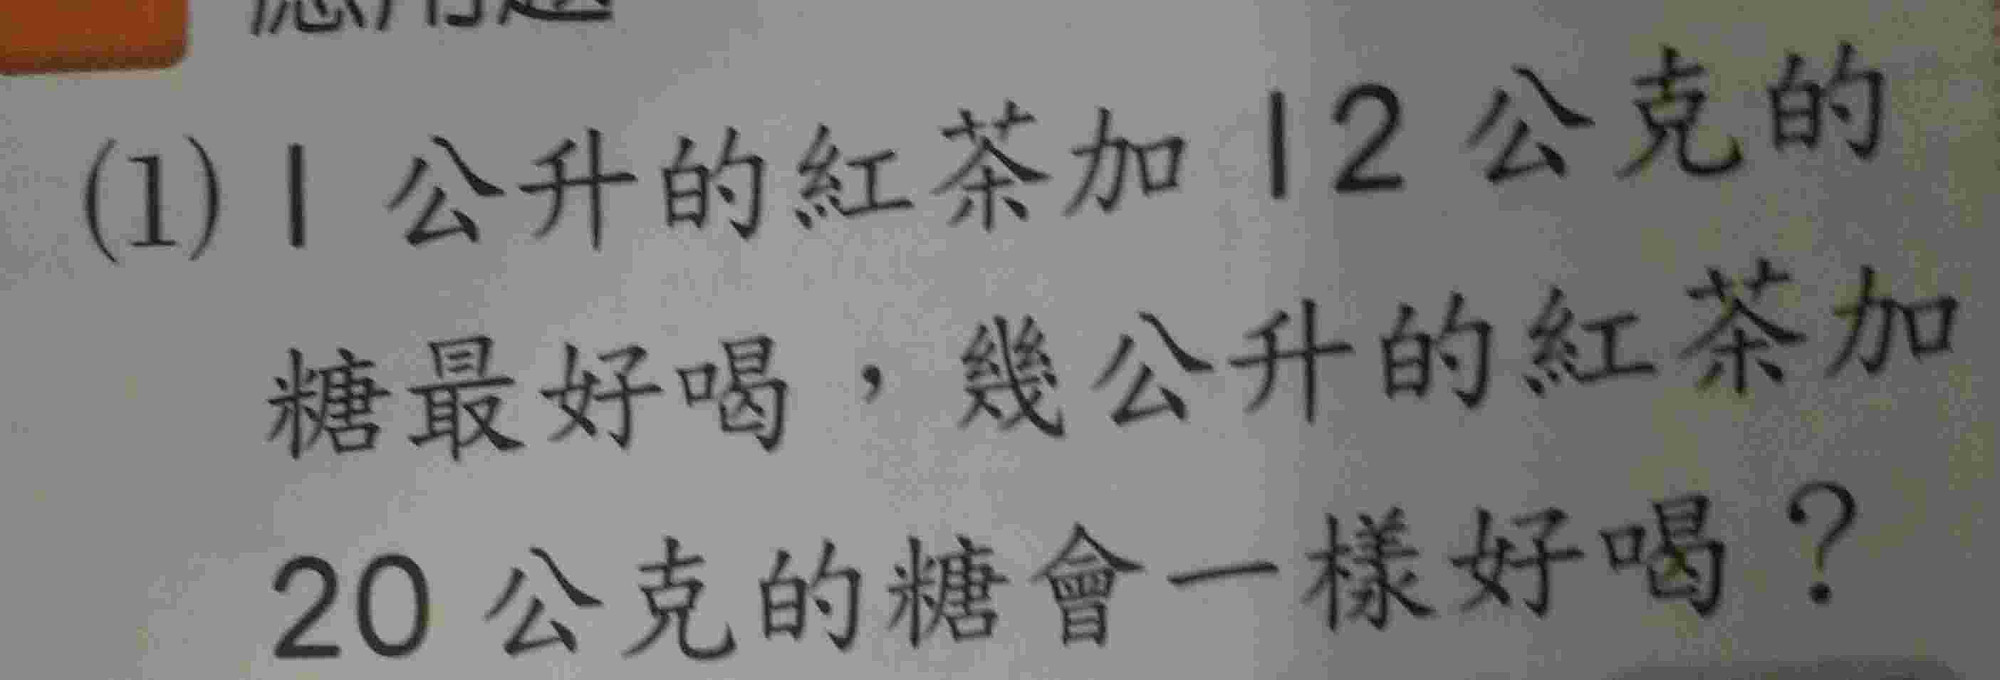 應用題
(1) 1 公升的紅茶加 12 公克的
糖最好喝,幾公升的紅茶加
20 公克的糖會一樣好喝?